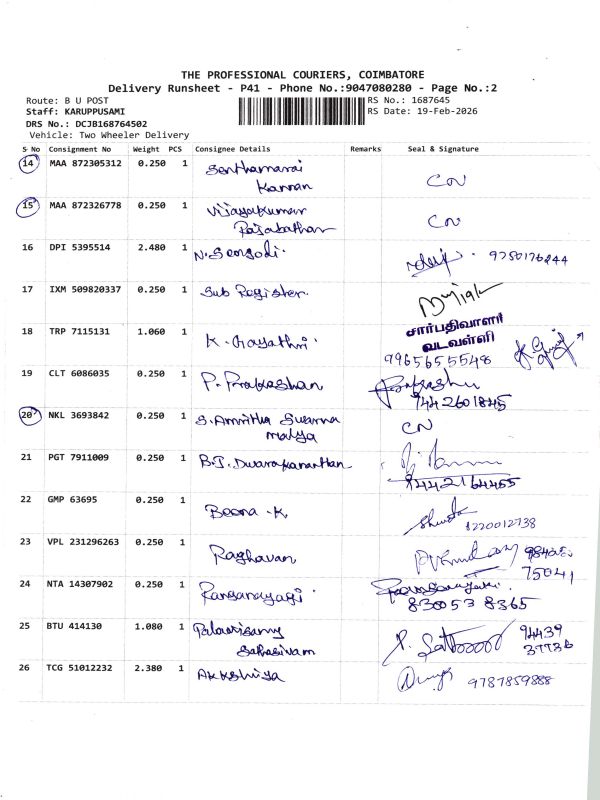 THE PROFESSIONAL COURIERS, COIMBATORE
Delivery Runsheet - P41 - Phone No.:9047080280 - Page No.:2
Route: B U POST RS No.: 1687645
Staff: KARUPPUSAMI RS Date: 19-Feb-2026
DRS No.: DCJB168764502
Vehicle: Two Wheeler Delivery
S No Consignment No Weight PCS Consignee Details Remarks Seal & Signature
14 MAA 872305312 0.250 1 Senthamarai
Kannan CN
15 MAA 872326778 0.250 1 Vijayakumar
Rajabathar CN
16 DPI 5395514 2.480 1 N. Sengodi. 9750176244
17 IXM 509820337 0.250 1 Sub Register.
சார்பதிவாளர்
18 TRP 7115131 1.060 1 K. Gayathri. வடவள்ளி
9965655548
19 CLT 6086035 0.250 1 P. Prakashan Prakashu
9442601845
20 NKL 3693842 0.250 1 S. Amritha Swarna
malya CN
21 PGT 7911009 0.250 1 B.J. Dwarakananthan
9442164455
22 GMP 63695 0.250 1 Beena .K 8220012738
23 VPL 231296263 0.250 1 Raghavan 75041
24 NTA 14307902 0.250 1 Ranganayagi
830053 8365
25 BTU 414130 1.080 1 Palanisamy
Sathasivam 94439
37736
26 TCG 51012232 2.380 1 Akkshiya 9787859888